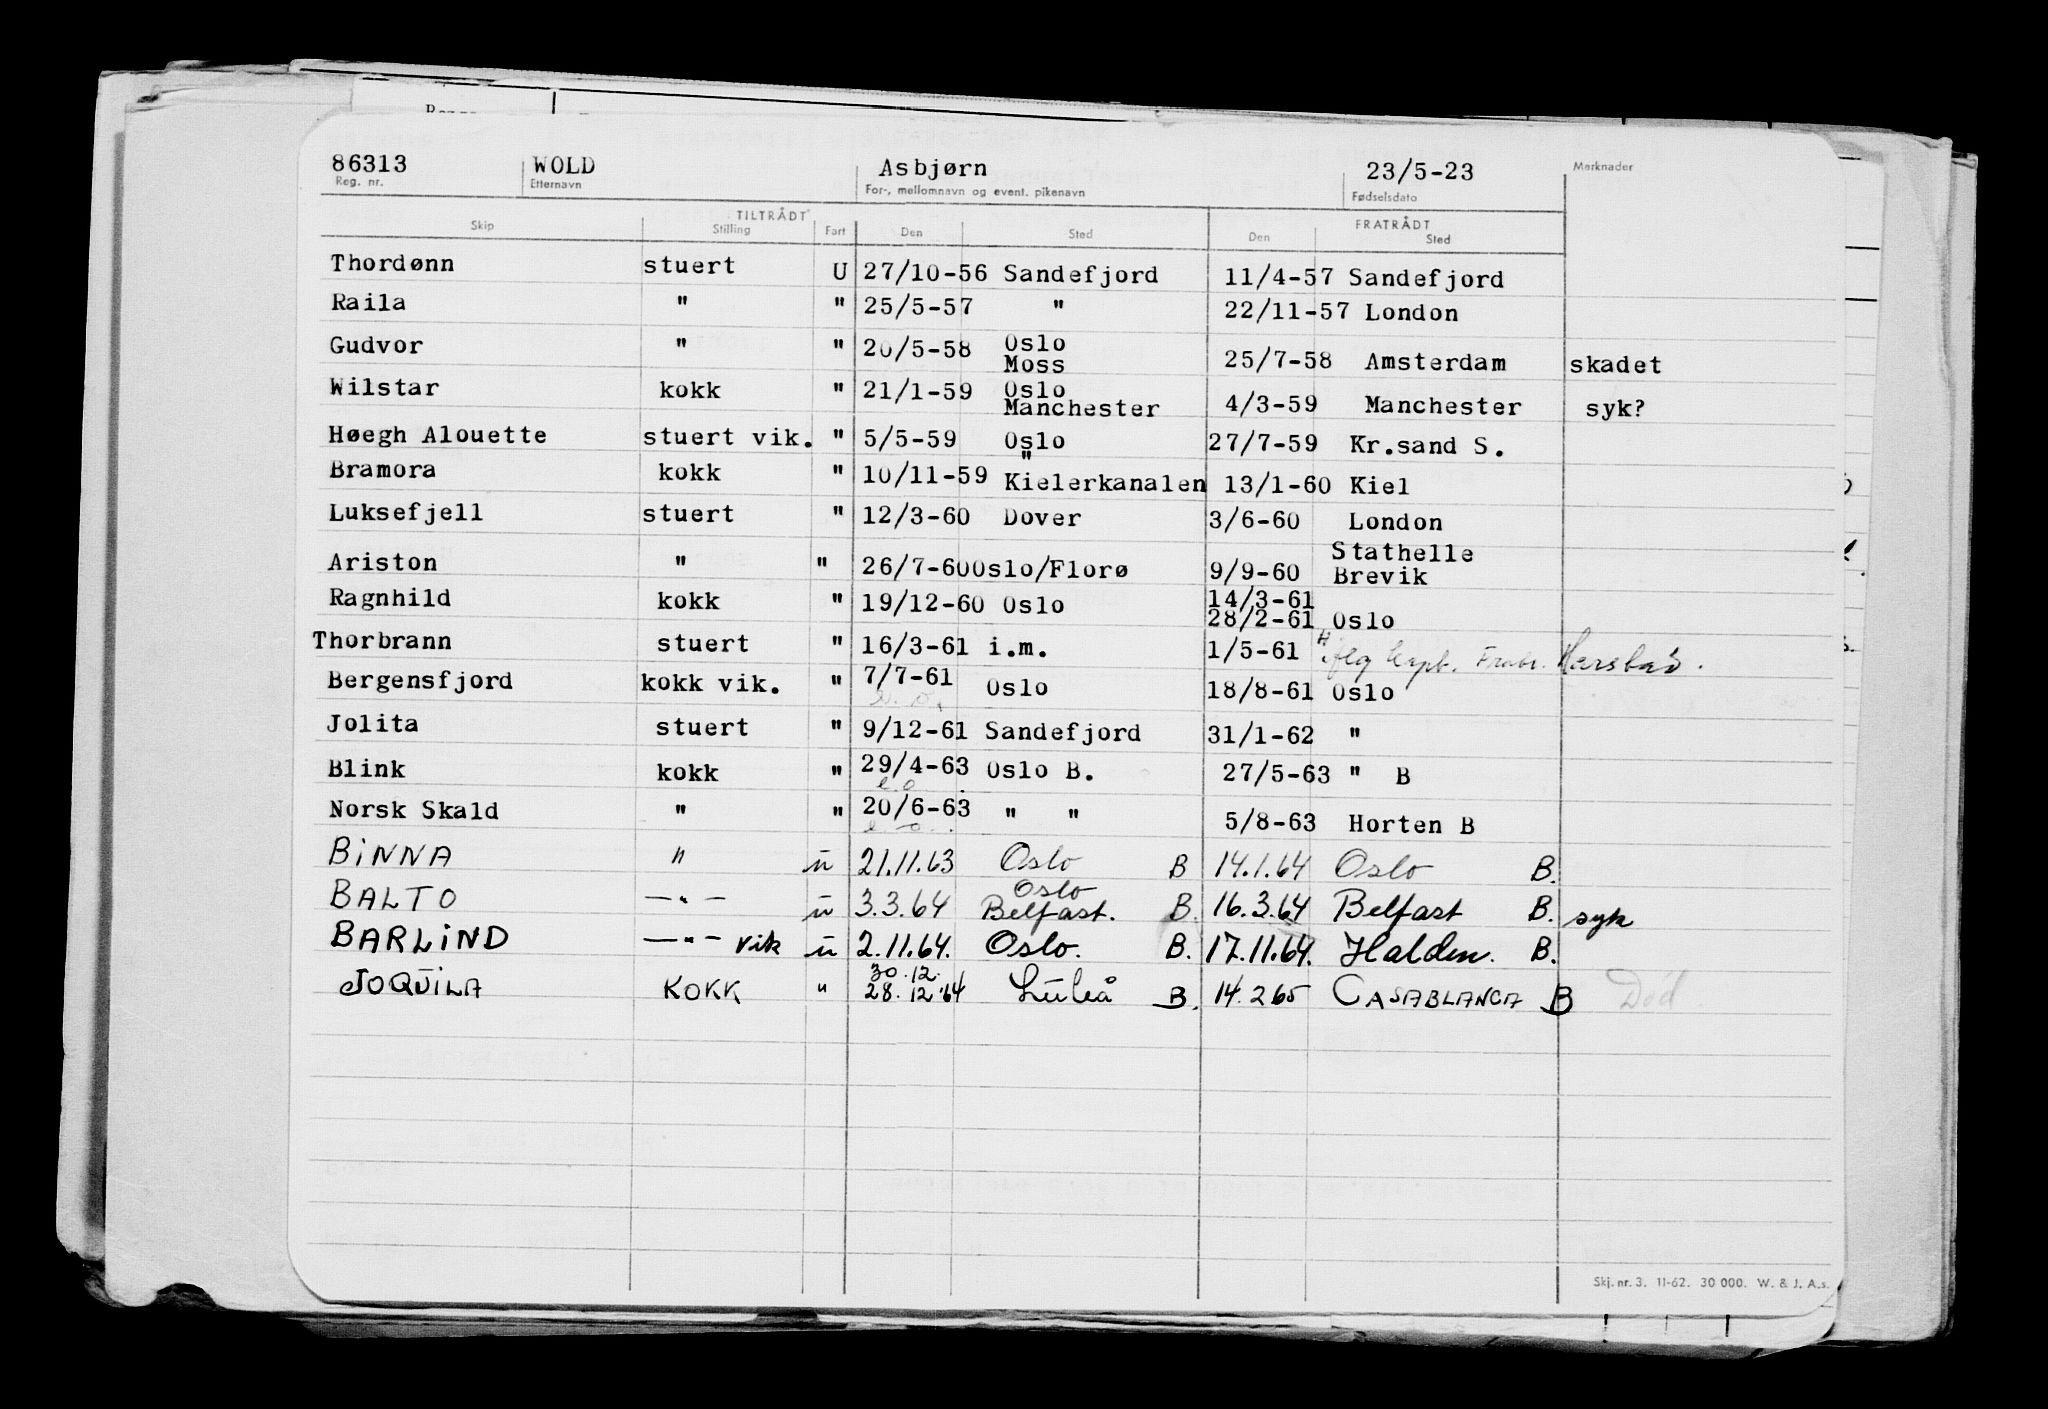 86313 WOLD Asbjørn 23/5-23 Merknader
Reg. nr. Etternavn For-, mellomnavn og event. pikenavn Fødselsdato
TILTRÅDT FRATRÅDT
Skip Stilling Fart Den Sted Den Sted
Thordønn stuert U 27/10-56 Sandefjord 11/4-57 Sandefjord
Raila " " 25/5-57 " 22/11-57 London
Gudvor " " 20/5-58 Oslo
Moss 25/7-58 Amsterdam skadet
Wilstar kokk " 21/1-59 Oslo
Manchester 4/3-59 Manchester syk?
Høegh Alouette stuert vik. " 5/5-59 Oslo 27/7-59 Kr.sand S.
Bramora kokk " 10/11-59 "
Kielerkanalen 13/1-60 Kiel
Luksefjell stuert " 12/3-60 Dover 3/6-60 London
Ariston " " 26/7-60 Oslo/Florø 9/9-60 Stathelle
Brevik
Ragnhild kokk " 19/12-60 Oslo 14/3-61
28/2-61 Oslo
Thorbrann stuert " 16/3-61 i.m. 1/5-61 Harstad.
Bergensfjord kokk vik. " 7/7-61 Oslo 18/8-61 Oslo
e.o.
Jolita stuert " 9/12-61 Sandefjord 31/1-62 "
Blink kokk " 29/4-63 Oslo B. 27/5-63 " B
e.o.
Norsk Skald " " 20/6-63 " " 5/8-63 Horten B
e.o.
BINNA " u 21.11.63 Oslo B 14.1.64 Oslo B.
BALTO —"— u 3.3.64 Oslo
Belfast. B. 16.3.64 Belfast B. syk
BARLIND —"— vik u 2.11.64. Oslo. B. 17.11.64. Halden. B.
JOQUILA KOKK " 30.12.
28.12.64 Luleå B. 14.2.65 CASABLANCA B Død
Skj. nr. 3. 11-62. 30 000. W. & J. A.s.